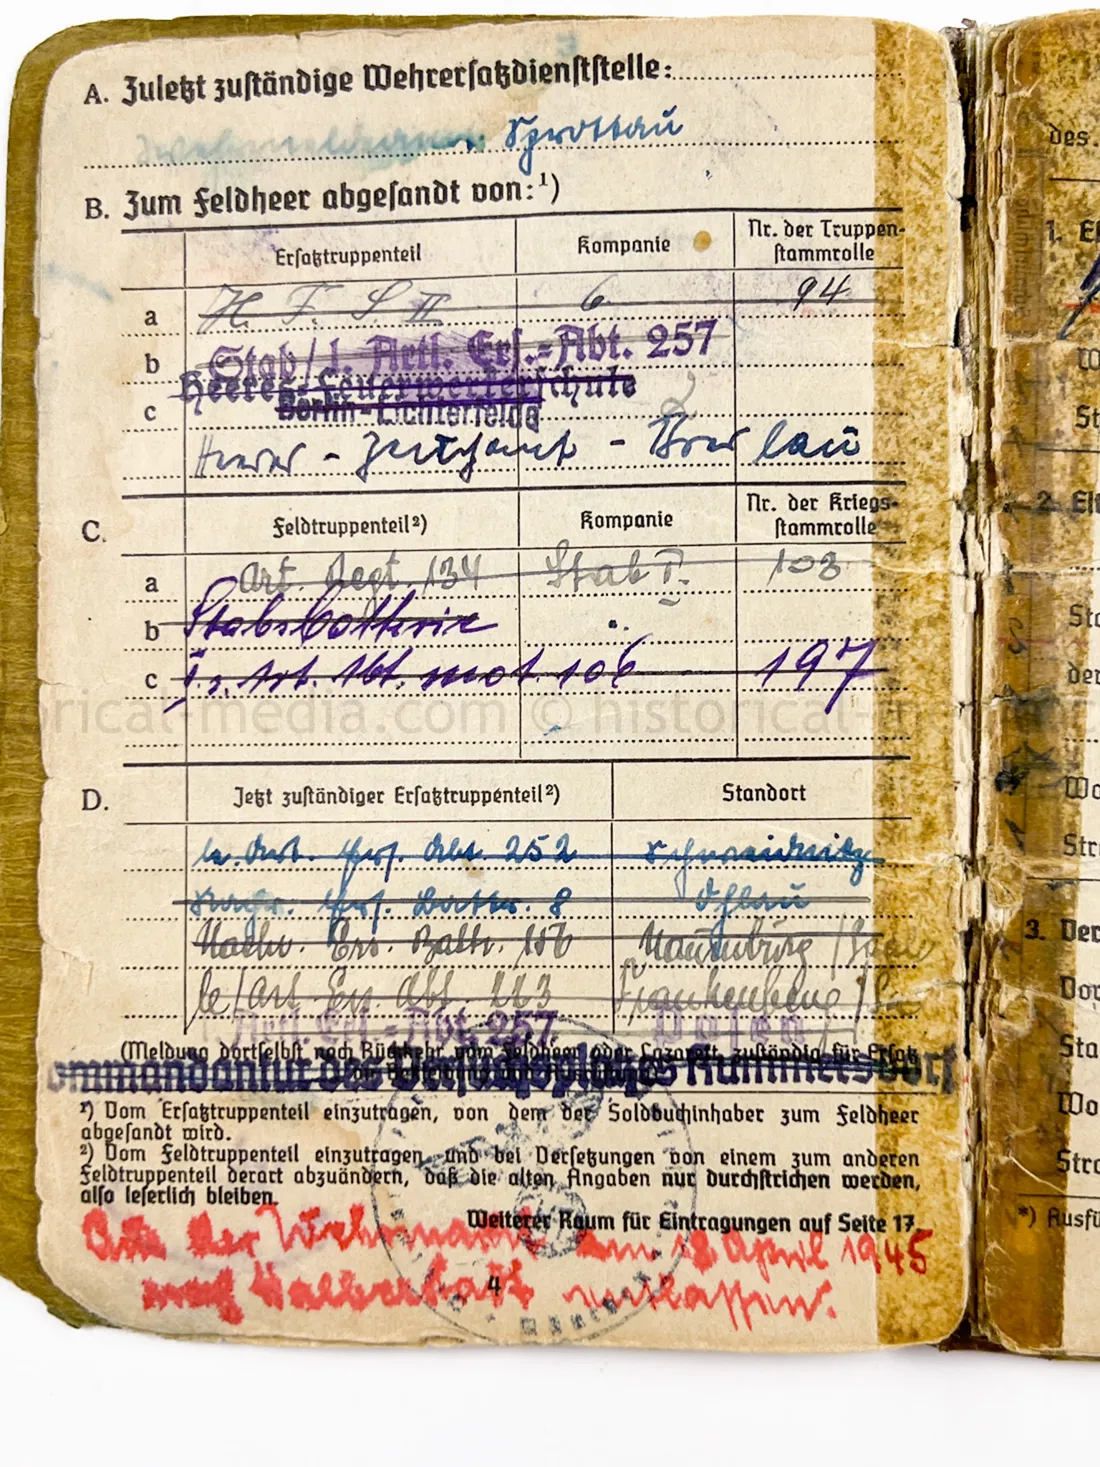 A. Zuletzt zuständige Wehrersatzdienststelle:
Wehrmeldeamt Sprottau
B. Zum Feldheer abgesandt von:¹)
Ersatztruppenteil Kompanie Nr. der Truppen-
stammrolle
a H. F. S II 6 94
b Stab/1. Artl. Ers.-Abt. 257
Heeres-Feuerwerkerschule
c Berlin-Lichterfelde
Heeres-Zeugamt - Breslau
C. Feldtruppenteil²) Kompanie Nr. der Kriegs-
stammrolle
a Art. Regt. 134 Stab I. 103
b Stabsbatterie "
c I. Art. Abt. mot 106 197
historical-media.com © historical-media
D. Jetzt zuständiger Ersatztruppenteil²) Standort
le. Art. Ers. Abt. 252 Schweidnitz
Nachr. Ers. Battr. 8 Ohlau
Nachr. Ers. Battr. Naumburg /Saale
le/Art Ers Abt. 223 Frankenberg /Sa
Artl. Ers.-Abt. 257 Posen
(Meldung dortselbst nach Rückkehr vom Feldheer oder Lazarett, zuständig für Ersatz
Kommandantur des Versuchsplatzes Kummersdorf
¹) Vom Ersatztruppenteil einzutragen, von dem der Soldbuchinhaber zum Feldheer
abgesandt wird.
²) Vom Feldtruppenteil einzutragen und bei Versetzungen von einem zum anderen
Feldtruppenteil derart abzuändern, daß die alten Angaben nur durchstrichen werden,
also leserlich bleiben.
Weiterer Raum für Eintragungen auf Seite 17.
Aus der Wehrmacht am 12 April 1945
nach Halberstadt entlassen.
4
des
1.
St
2.
Sta
der
Wo
Str
3. Der
Vor
Sta
Wo
Stra
*) Ausfü